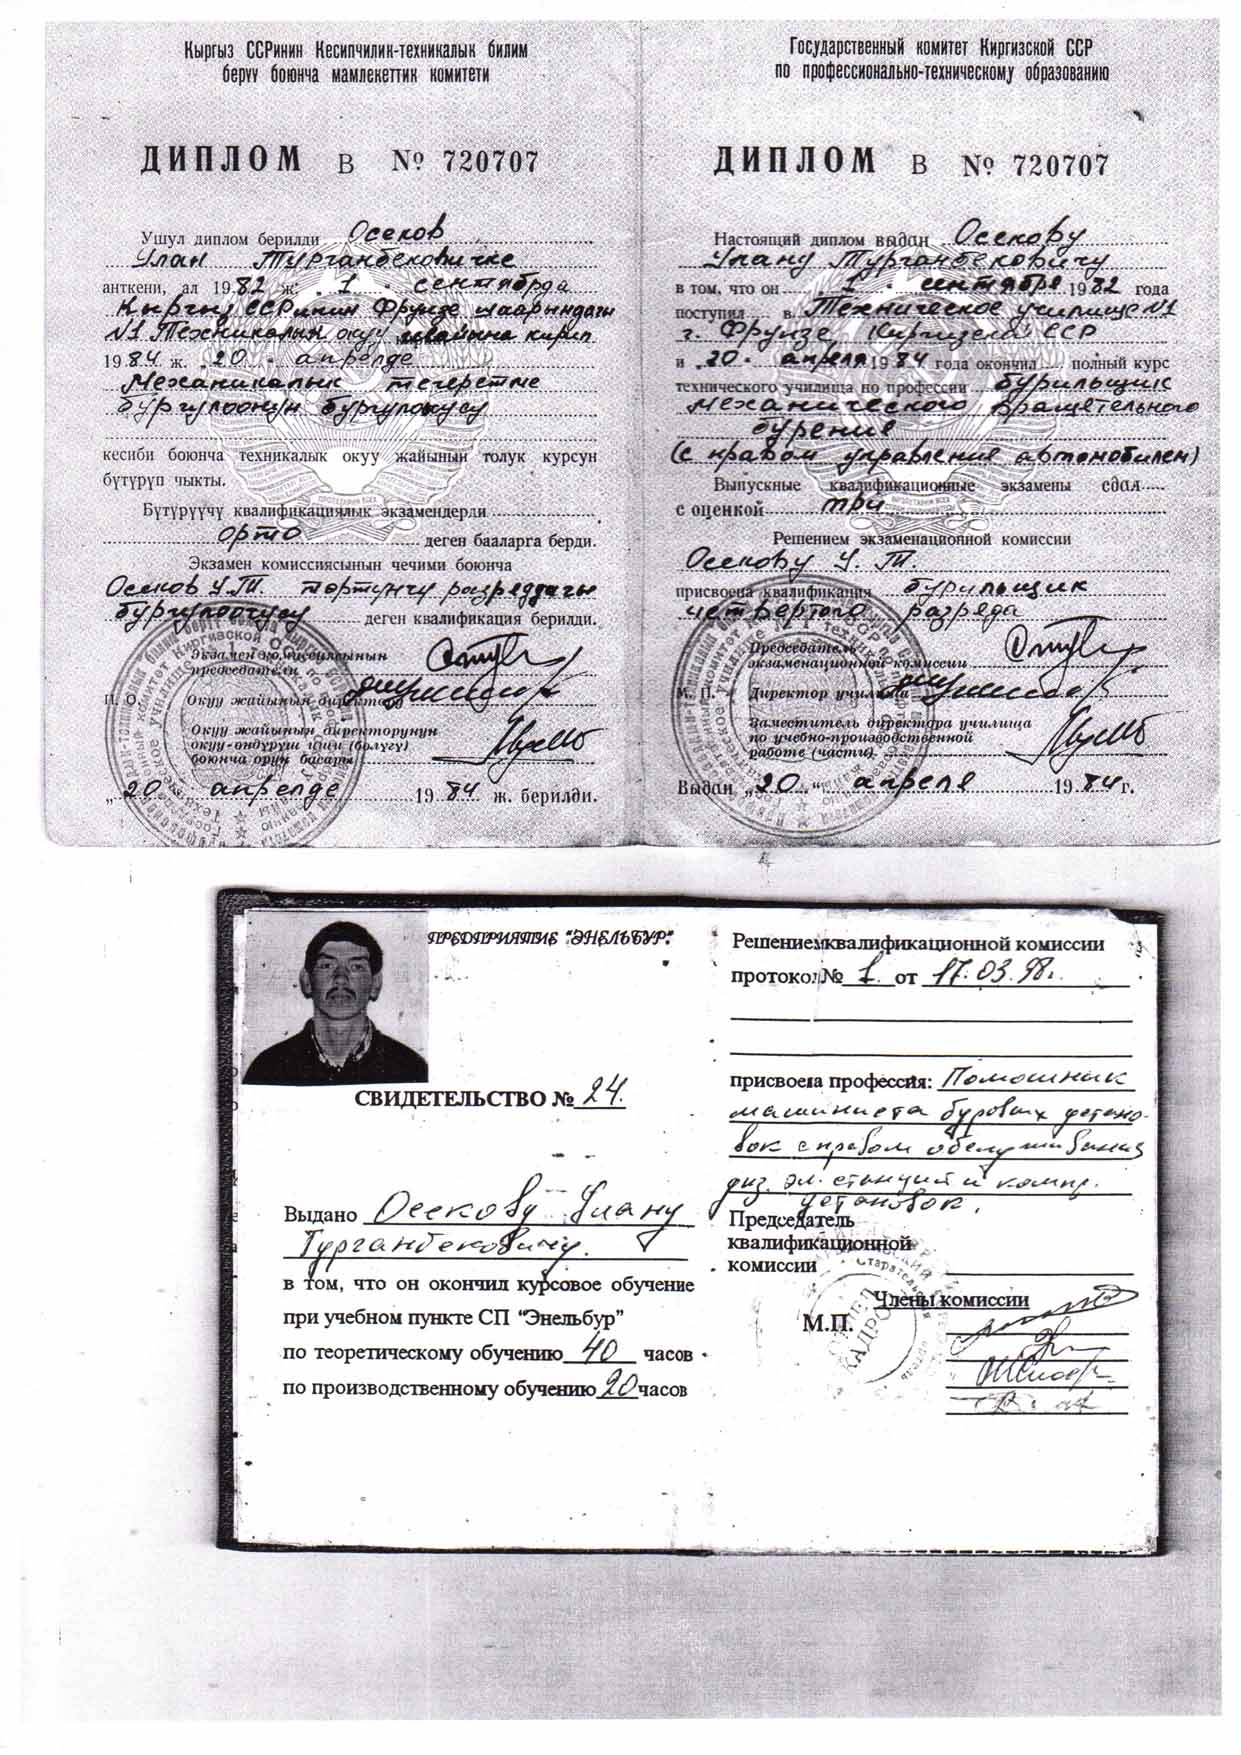 Кыргыз ССРинин Кесипчилик-техникалык билим
берүү боюнча мамлекеттик комитети
ДИПЛОМ В № 720707
Ушул диплом берилди Осеков
Улан Турганбековичке
анткени, ал 1982 ж. „1 - сентябрда
Кыргыз ССРинин Фрунзе шаарындагы
№1 Техникалык окуу жайына кирип
1984 ж. „20 - апрелде
Механикалык тегеретме
бургулоонун бургулоочусу
кесиби боюнча техникалык окуу жайынын толук курсун
бүтүрүп чыкты.
Бүтүрүүчү квалификациялык экзамендерди
орто деген бааларга берди.
Экзамен комиссиясынын чечими боюнча
Осеков У.Т. төртүнчү разряддагы
бургулоочусу деген квалификация берилди.
Экзамен комиссиясынын
председатели
П. О. Окуу жайынын директору
Окуу жайынын директорунун
окуу-өндүрүш иши (бөлүгү)
боюнча орун басары
„20 апрелде 1984 ж. берилди.
Государственный комитет Киргизской ССР
по профессионально-техническому образованию
ДИПЛОМ В № 720707
Настоящий диплом выдан Осекову
Улану Турганбековичу
в том, что он „1 - сентября 1982 года
поступил в Техническое училище №1
г. Фрунзе Киргизской ССР
и „20 - апреля 1984 года окончил полный курс
технического училища по профессии бурильщик
механического вращательного
бурения
(с правом управления автомобилем)
Выпускные квалификационные экзамены сдал
с оценкой три
Решением экзаменационной комиссии
Осекову У. Т.
присвоена квалификация бурильщик
четвертого разряда
Председатель
экзаменационной комиссии
М. П. Директор училища
Заместитель директора училища
по учебно-производственной
работе (части)
Выдан „20“ апреля 1984 г.
ПРЕДПРИЯТИЕ "ЭНЕЛЬБУР"
СВИДЕТЕЛЬСТВО № 24.
Выдано Осекову Улану
Турганбековичу.
в том, что он окончил курсовое обучение
при учебном пункте СП "Энельбур"
по теоретическому обучению 40 часов
по производственному обучению 20 часов
Решением квалификационной комиссии
протокол № 1 от 17.03.98г.
присвоена профессия: Помошник
машиниста буровых устано-
вок с правом обслуживания
диз. эл. станций и компр.
установок.
Председатель
квалификационной
комиссии
Члены комиссии
М.П.
ОТДЕЛ
КАДРОВ